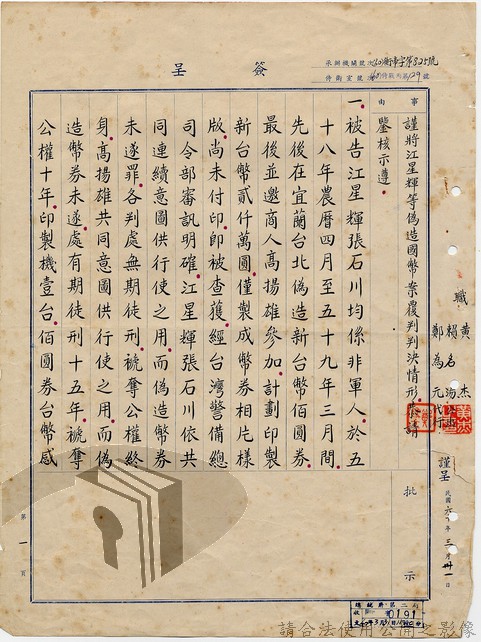 簽呈
承辦機關號次(60)衡聿字第825號
侍衛室號次
事由
謹將江星輝等偽造國幣案覆判判決情形簽請
鑒核示遵
一、被告江星輝張石川均係非軍人於五
十八年農曆四月至五十九年三月間
先後在宜蘭台北偽造新台幣佰圓券
最後並邀商人高揚雄參加計劃印製
新台幣貳仟萬圓僅製成幣券相片樣
版尚未付印即被查獲經台灣警備總
司令部審訊明確江星輝張石川依共
同連續意圖供行使之用而偽造幣券
未遂罪各判處無期徒刑褫奪公權終
身高揚雄共同意圖供行使之用而偽
造幣券未遂處有期徒刑十五年褫奪
公權十年印製機壹台佰圓券台幣感
職
黃杰
賴名湯
鄭為元代行
謹呈
民國六〇年三月卅一日
批示
第一頁
總統府第二局
0191
請合法使用公開之影像